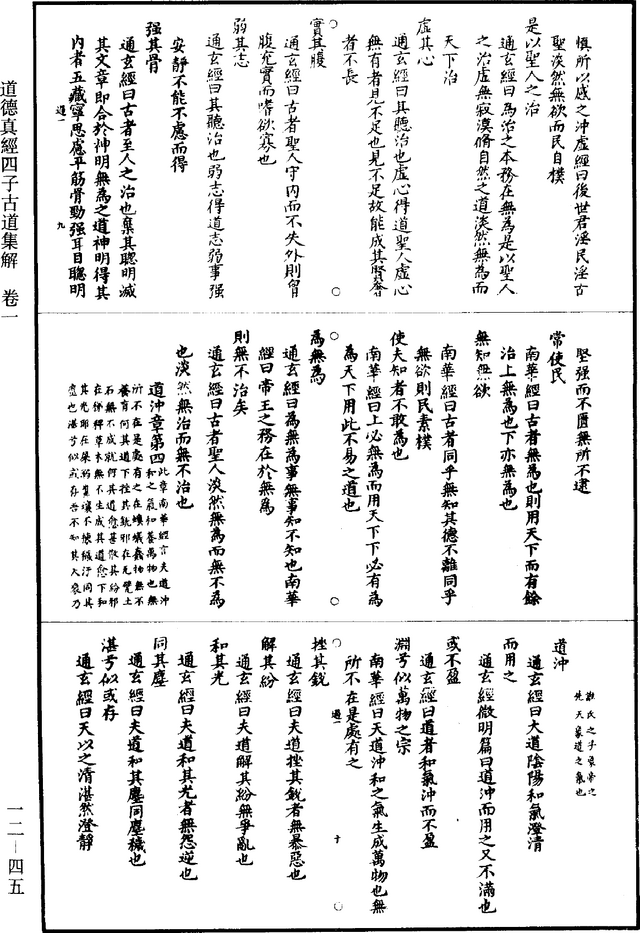 慎所以感之沖虛經曰後世君淫民淫古
聖淡然無欲而民自樸
是以聖人之治
通玄經曰為治之本務在無為是以聖人
之治虛無寂漠脩自然之道淡然無為而
天下治
虛其心
通玄經曰其聽治也虛心得道聖人虛心
無有者見不足也見不足故能成其賢奢
者不長
實其腹
通玄經曰古者聖人守內而不失外則胷
腹充實而嗜欲寡也
弱其志
通玄經曰其聽治也弱志得道志弱事强
安靜不能不慮而得
强其骨
通玄經曰古者至人之治也棄其聰明滅
其文章即合於神明無為之道神明得其
內者五藏寧思慮平筋骨勁强耳目聰明
道一 九
堅强而不匱無所不逮
常使民
南華經曰古者無為也則用天下而有餘
治上無為也下亦無為也
無知無欲
南華經曰古者同乎無知其德不離同乎
無欲則民素樸
使夫知者不敢為也
南華經曰上必無為而用天下下必有為
為天下用此不易之道也
為無為
通玄經曰為無為事無事知不知也南華
經曰帝王之務在於無為
則無不治矣
通玄經曰古者聖人淡然無為而無不為
也淡然無治而無不治也
道沖章第四
此章南華經言夫道沖
和之氣和養萬物也無
所不在是處有之在螻蟻蠢物無不
養育何其道下挫其銳邪在瓦甓土
石無不成就何其道愈甚解其紛邪
在稊稗草木無不生成其道愈下和
其光邪在
同其
塵也湛兮似或存吾不知其人象乃
誰氏之子象帝之
先天象道之象也
道沖
通玄經曰大道陰陽和氣澄清
而用之
通玄經微明篇曰道沖而用之又不滿也
或不盈
通玄經曰道者和氣沖而不盈
淵兮似萬物之宗
南華經曰天道沖和之氣生成萬物也無
所不在是處有之
道一 十
挫其銳
通玄經曰夫道挫其銳者無暴惡也
解其紛
通玄經曰夫道解其紛無爭亂也
和其光
通玄經曰夫道和其光者無怨逆也
同其塵
通玄經曰夫道和其塵同塵穢也
湛兮似或存
通玄經曰天以之清湛然澄靜
道德真經四子古道集解　卷一
一二—四五